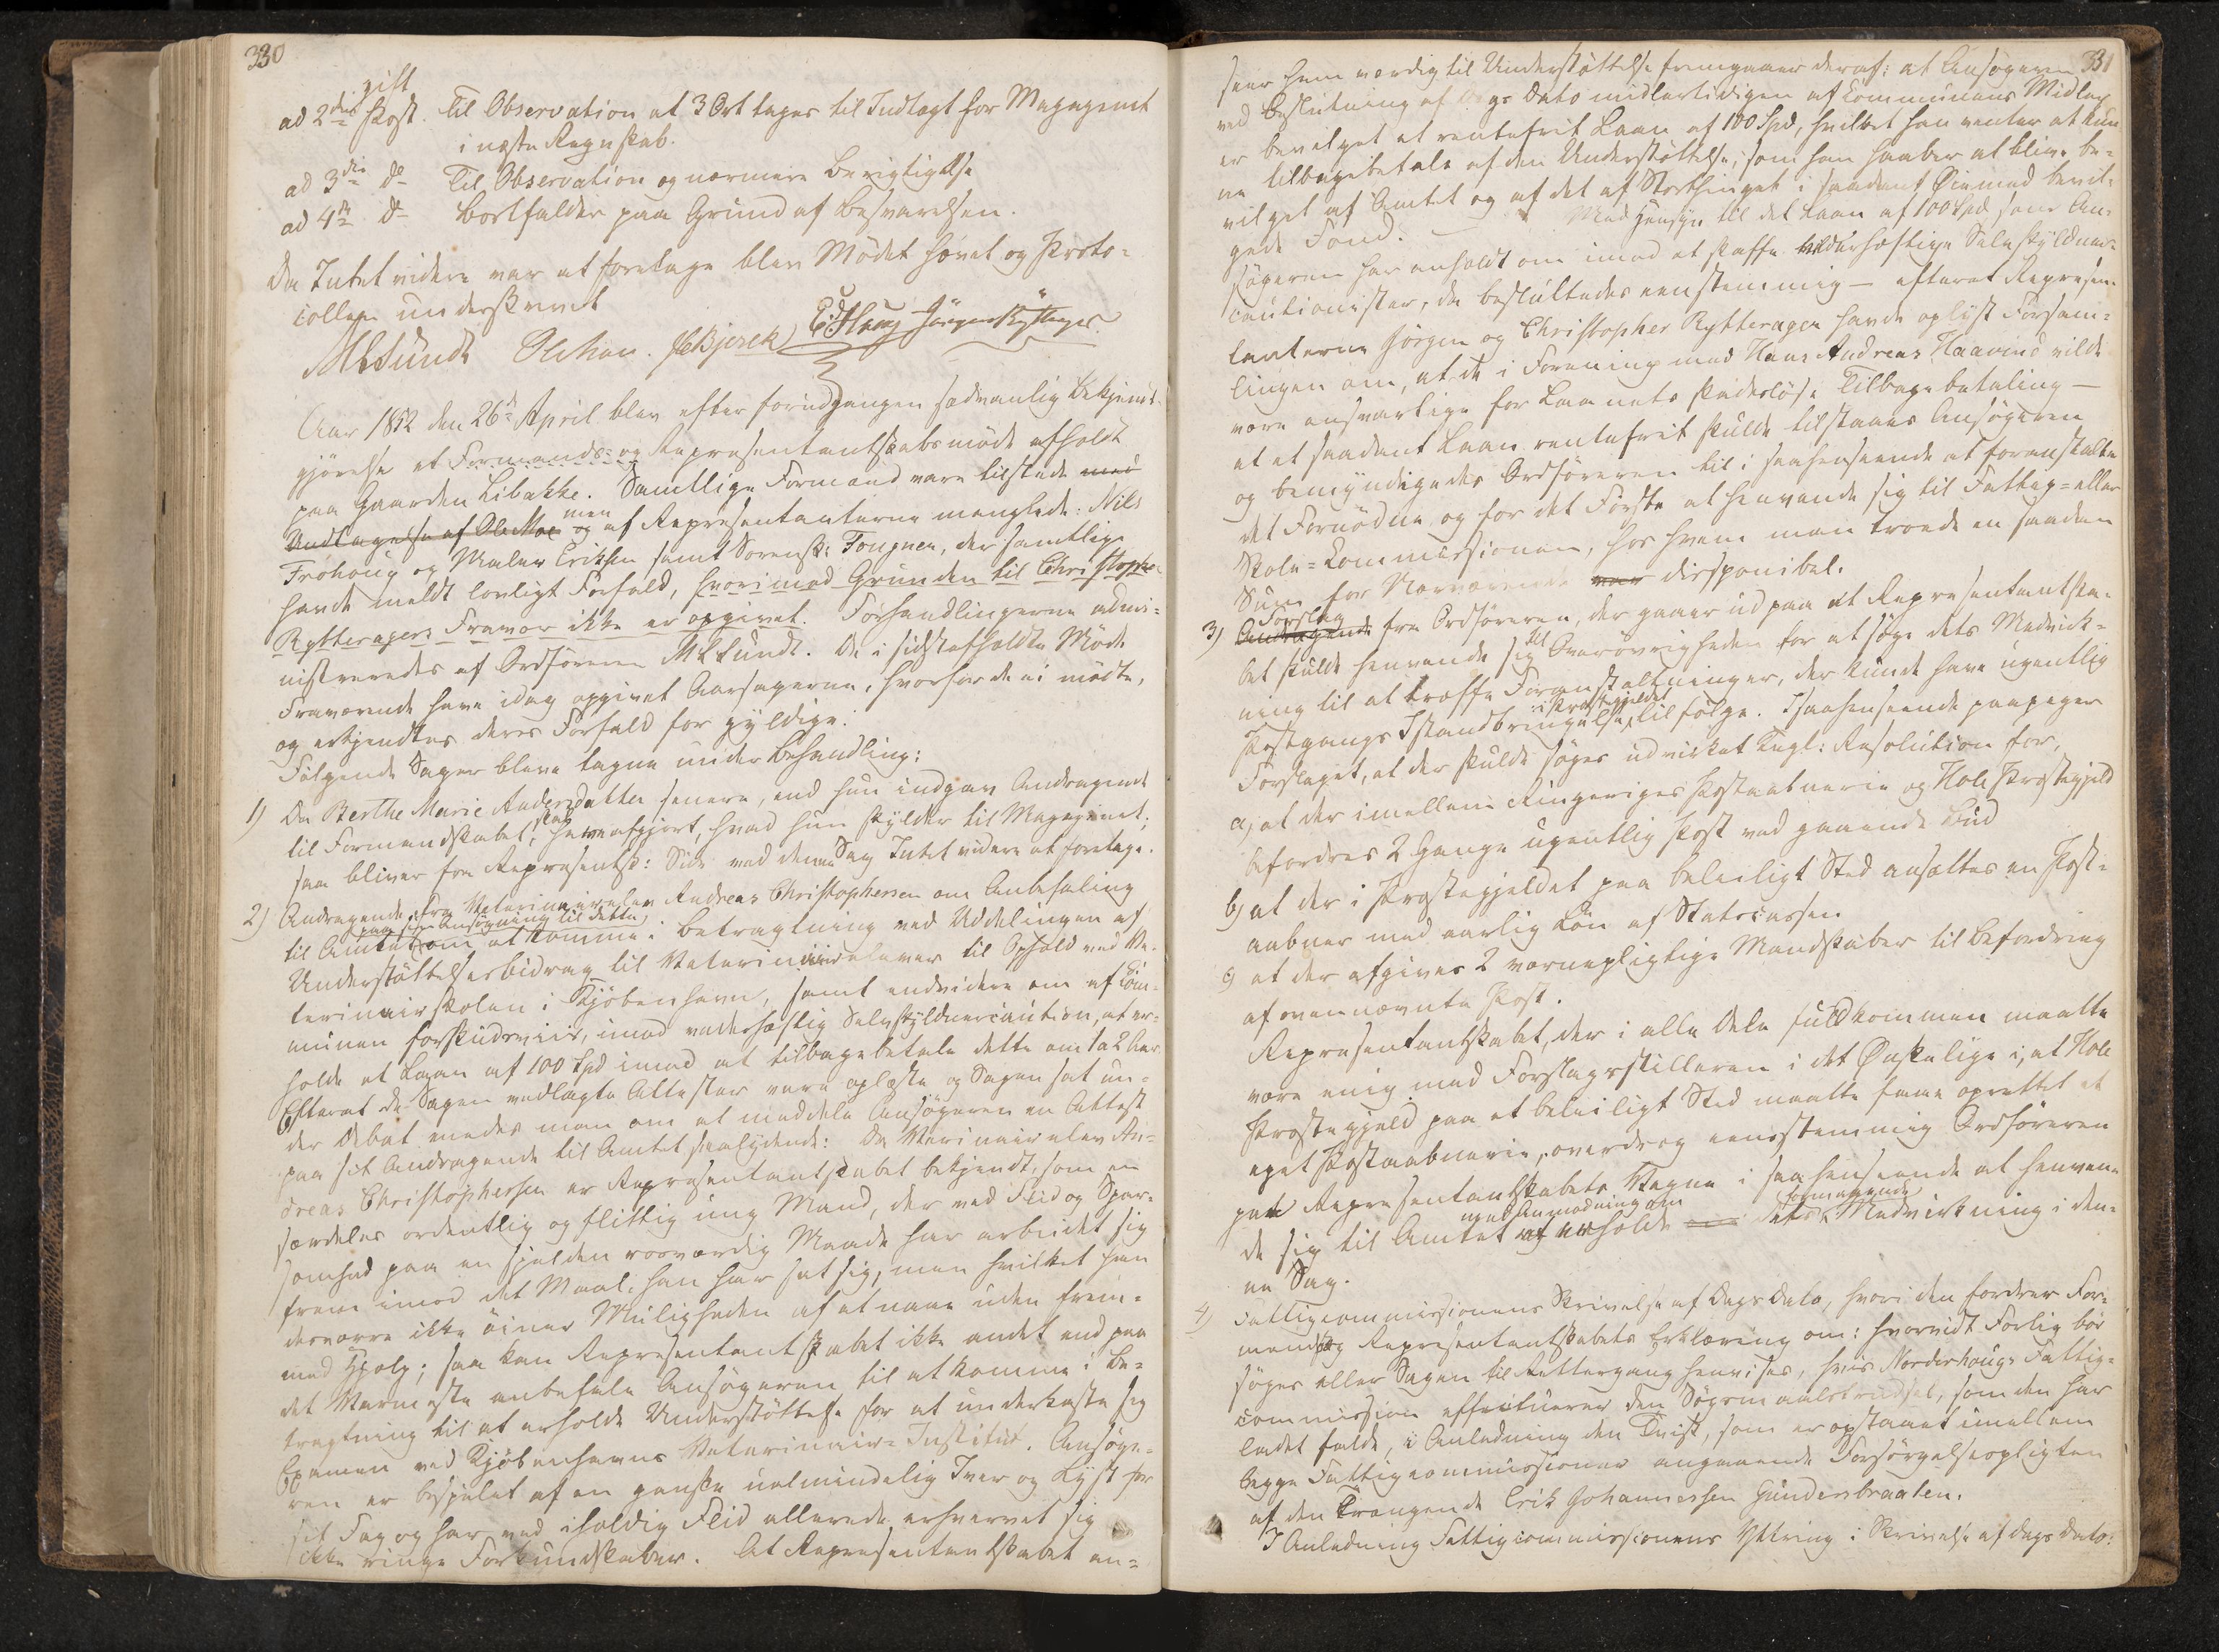 330
gift
ad 2den Post. Til Observation at 3 Ort tages til Indtægt for Magazinet
i næste Regnskab.
ad 3die do Til Observation og nærmere Berigtigelse
ad 4de do Bortfalder paa Grund af Besvarelsen.
Da Intet videre var at foretage blev Mødet hævet og Proto-
collen underskrevet
MLSundt Olehau. Jebjerck E. Houg Jørgen Rytterager.
Aar 1852 den 26de April blev efter forudgangen sædvanlig Bekjendt-
gjørelse et Formands- og Repræsentantskabsmøde afholdt
paa Gaarden Libakke. Samtlige Formænd vare tilstede med
Undtagelse af Ole Moe og men af Repræsentanterne manglede: Nils
Frøhoug og Maler Eriksen samt Sorensk: Fougner, der samtlige
havde meldt lovligt Forfald, hvorimod Grunden til Christopher
Rytteragers Fravær ikke er opgivet. Forhandlingerne admi-
nistreredes af Ordføreren MLSundt. De i sidstafholdte Møde
Fraværende have idag opgivet Aarsagerne, hvorfor de ei mødte,
og erkjendtes deres Forfald for gyldige.
Følgende Sager bleve tagne under Behandling:
1) Da Berthe Marie Andersdatter senere, end hun indgav Andragendet
til Formandskabet, skal have afgjort, hvad hun skylder til Magazinet;
saa bliver fra Repræsentsk: Side ved denne Sag Intet videre at foretage.
2) Andragende fra Veterinairelev Andreas Christophersen om Anbefaling
paa sin Ansøgning til dette,
til Amtet om at komme i Betragtning ved Uddelingen af
Understøttelsesbidrag til Veterinairelever til Ophold ved Ve-
terinairskolen i Kjøbenhavn, samt endvidere om af Com-
munen forskudsviis, imod vederhæftig Selvskyldnercaution, at er-
holde et Laan af 100 Spd imod at tilbagebetale dette om 1 a 2 Aar.
Efterat de Sagen vedlagte Attester vare oplæste og Sagen sat un-
der Debat enedes man om at meddele Ansøgeren en Attest
paa sit Andragende til Amtet saalydende: Da Veterinairelev An-
dreas Christophersen er Repræsentantskabet bekjendt, som en
særdeles ordentlig og flittig ung Mand, der ved Flid og Spar-
somhed paa en sjelden rosværdig Maade har arbeidet sig
frem imod det Maal, han har sat sig, men hvilket han
desværre ikke øiner Muligheden af at naae uden frem-
med Hjælp; saa kan Repræsentantskabet ikke andet end paa
det Varmeste anbefale Ansøgeren til at komme i Be-
tragtning til at erholde Understøttelse for at underkaste sig
Examen ved Kjøbenhavns Veterinair-Institut. Ansøge-
ren er besjelet af en ganske ualmindelig Iver og Lyst for
sit Fag og har ved iholdig Flid allerede erhvervet sig
ikke ringe Forkundskaber. At Repræsentantskabet an-
331
seer ham værdig til Understøttelse fremgaaer deraf: at Ansøgeren
ved Beslutning af Dags Dato midlertidigen af Communens Midler
er bevilget et rentefrit Laan af 100 Spd, hvilket han venter at kun-
ne tilbagebetale af den Understøttelse, som han haaber at blive be-
vilget af Amtet og af det af Storthinget i saadant Øiemed bevil-
gede Fond. — Med Hensyn til det Laan af 100 Spd som An-
søgeren har anholdt om imod at skaffe vederhæftige Selvskyldner-
cautionister, da besluttedes eenstemmig — efterat Repræsen-
tanterne Jørgen og Christopher Rytterager havde oplyst Forsam-
lingen om, at de i Forening med Hans Andreas Haavind vilde
være ansvarlige for Laanets skadesløse Tilbagebetaling —
at et saadant Laan rentefrit skulde tilstaaes Ansøgeren
og bemyndigedes Ordføreren til i saahenseende at foranstalte
det Fornødne og for det Første at henvende sig til Fattig- eller
Skole-Commissionen, hos hvem man troede en saadan
Sum for Nærværende var disponibel.
3) Forslag
Andragende fra Ordføreren, der gaaer ud paa at Repræsentantska-
bet skulde henvende sig til Overøvrigheden for at søge dets Medvirk-
ning til at træffe Foranstaltninger, der kunde have ugentlig
Postgangs Istandbringelse i Præstegjeldet tilfølge. I saahenseende paapeger
Forslaget, at der skulde søges udvirket Kngl: Resolution for,
a, at der imellem Ringeriges Postaabnerie og Hole Præstegjeld
befordres 2 Gange ugentlig Post ved gaaende Bud
b, at der i Præstegjeldet paa beleiligt Sted ansættes en Post-
aabner med aarlig Løn af Statscassen
c, at der afgives 2 værnepligtige Mandskaber til Befordring
af ovennævnte Post.
Repræsentantskabet, der i alle Dele fuldkommen maatte
være enig med Forslagsstilleren i det Ønskelige i, at Hole
Præstegjeld paa et beleiligt Sted maatte faae oprettet et
eget Postaabnerie, overdrog eenstemmig Ordføreren
paa Repræsentantskabets Vegne i saa henseende at henven-
de sig til Amtet med Anmodning om at erholde dets formaaende Medvirkning i den-
ne Sag.
4) Fattigcommissionens Skrivelse af Dags Dato, hvori den fordrer For-
mands og Repræsentantskabets Erklæring om: hvorvidt Forlig bør
søges eller Sagen til Rettergang henvises, hvis Norderhougs Fattig-
commission effectuerer den Søgsmaalstrudsel, som den har
ladet falde, i Anledning den Tvist, som er opstaaet imellem
begge Fattigcommissioner angaaende Forsørgelsespligten
af den Trængende Erik Johannessen Gundersbraaten.
I Anledning Fattigcommissionens Yttring i Skrivelse af dags Dato: